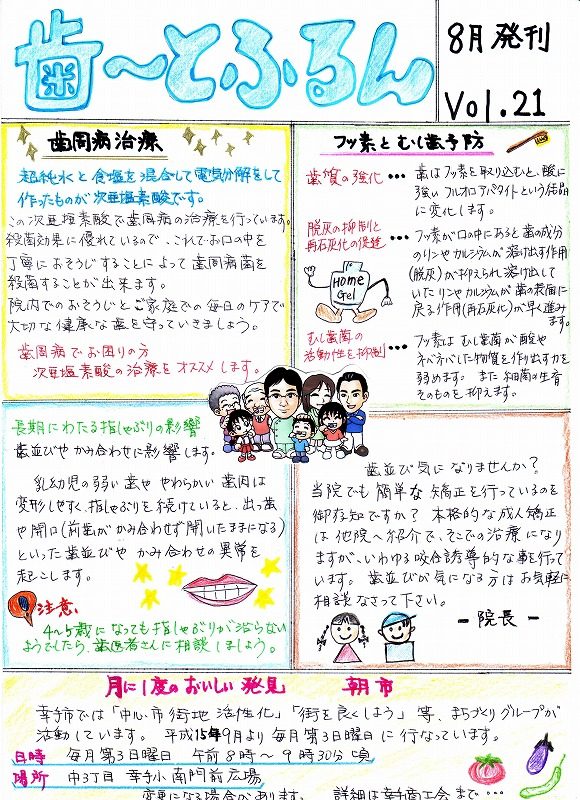 歯〜とふるん
8月発刊
Vol.21
歯周病治療
超純水と食塩を混合して電気分解をして
作ったものが次亜塩素酸です。
この次亜塩素酸で歯周病の治療を行っています。
殺菌効果に優れているので、これでお口の中を
丁寧におそうじすることによって歯周病菌を
殺菌することが出来ます。
院内でのおそうじとご家庭での毎日のケアで
大切な健康な歯を守っていきましょう。
歯周病でお困りの方
次亜塩素酸の治療をオススメします。
フッ素とむし歯予防
歯質の強化・・・歯はフッ素を取り込むと、酸に
強いフルオロアパタイトという結晶
に変化します。
脱灰の抑制と
再石灰化の促進・・・フッ素が口の中にあると歯の成分
のリンやカルシウムが溶け出す作用
(脱灰)が抑えられ溶け出して
いたリンやカルシウムが歯の表面に
戻る作用(再石灰化)が早く進み
ます。
Home
Gel
むし歯菌の
活動性を抑制・・・フッ素はむし歯菌が酸や
ネバネバした物質を作り出す力を
弱めます。また細菌の生育
そのものを抑えます。
長期にわたる指しゃぶりの影響
歯並びやかみ合わせに影響します。
乳幼児の弱い歯ややわらかい歯肉は
変形しやすく、指しゃぶりを続けていると、出っ歯
や開口(前歯がかみ合わせず開いたままになる)
といった歯並びやかみ合わせの異常を
起こします。
注意、
4〜5歳になっても指しゃぶりが治らない
ようでしたら、歯医者さんに相談しましょう。
歯並び気になりませんか?
当院でも簡単な矯正を行っているのを
御存知ですか?本格的な成人矯正
は他院へ紹介で、そこでの治療になり
ますが、いわゆる咬合誘導的な事を行って
います。歯並びが気になる方はお気軽に
相談なさって下さい。
-院長-
月に1度のおいしい発見 朝市
幸手市では「中心市街地活性化」「街を良くしよう」等、まちづくりグループが
活動しています。平成15年9月より毎月第3日曜日に行なっています。
日時 毎月第3日曜日 午前8時〜9時30分頃
場所 中3丁目 幸手小南門前広場
変更になる場合があります。 詳細は幸手商工会まで・・・